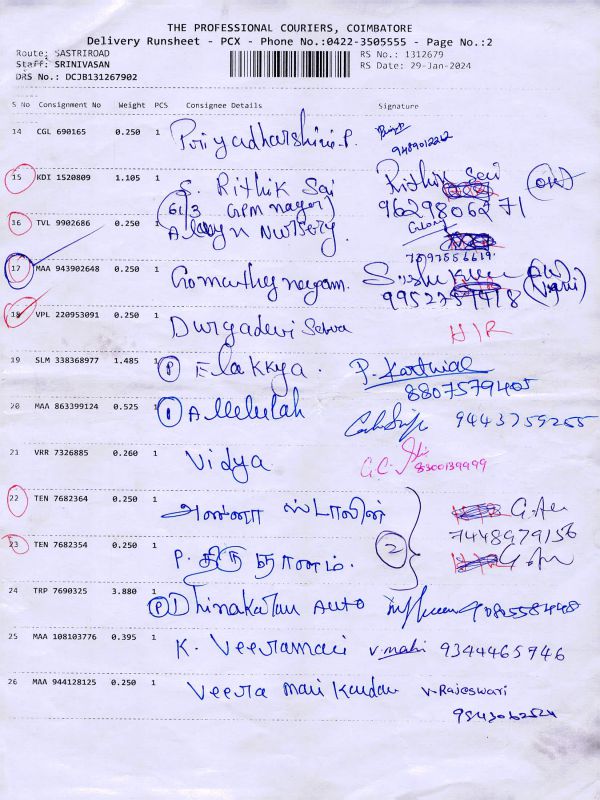 THE PROFESSIONAL COURIERS, COIMBATORE
Delivery Runsheet - PCX - Phone No.:0422-3505555 - Page No.:2
Route: SASTRIROAD
RS No.: 1312679
Staff: SRINIVASAN
RS Date: 29-Jan-2024
DRS No.: DCJB131267902
S No Consignment No Weight PCS Consignee Details Signature
14 CGL 690165 0.250 1 Priyadharshini-P.
9489012262
15 KDI 1520809 1.105 1 S. Rithik Sai Rithik Sai
6L/3 GPM nagar 9629806271
16 TVL 9902686 0.250 1 Nursery
17 MAA 943902648 0.250 1 Gomathy nayagam.
18 VPL 220953091 0.250 1 Durgadevi H/R
19 SLM 338368977 1.485 1 P Elakkya. P. Karthial
8807579405
20 MAA 863399124 0.525 1 9443759255
21 VRR 7326885 0.260 1 Vidya G.C.
8300139999
22 TEN 7682364 0.250 1 அண்ணா ஸ்டாலின்
7448979156
2
23 TEN 7682354 0.250 1 P. திருஞானம்.
24 TRP 7690325 3.880 1 P Dhinakaran Auto
25 MAA 108103776 0.395 1 K. Veeramari V.mari 9344465946
26 MAA 944128125 0.250 1 Veera mari Kandan V-Rajeswari
9843062524